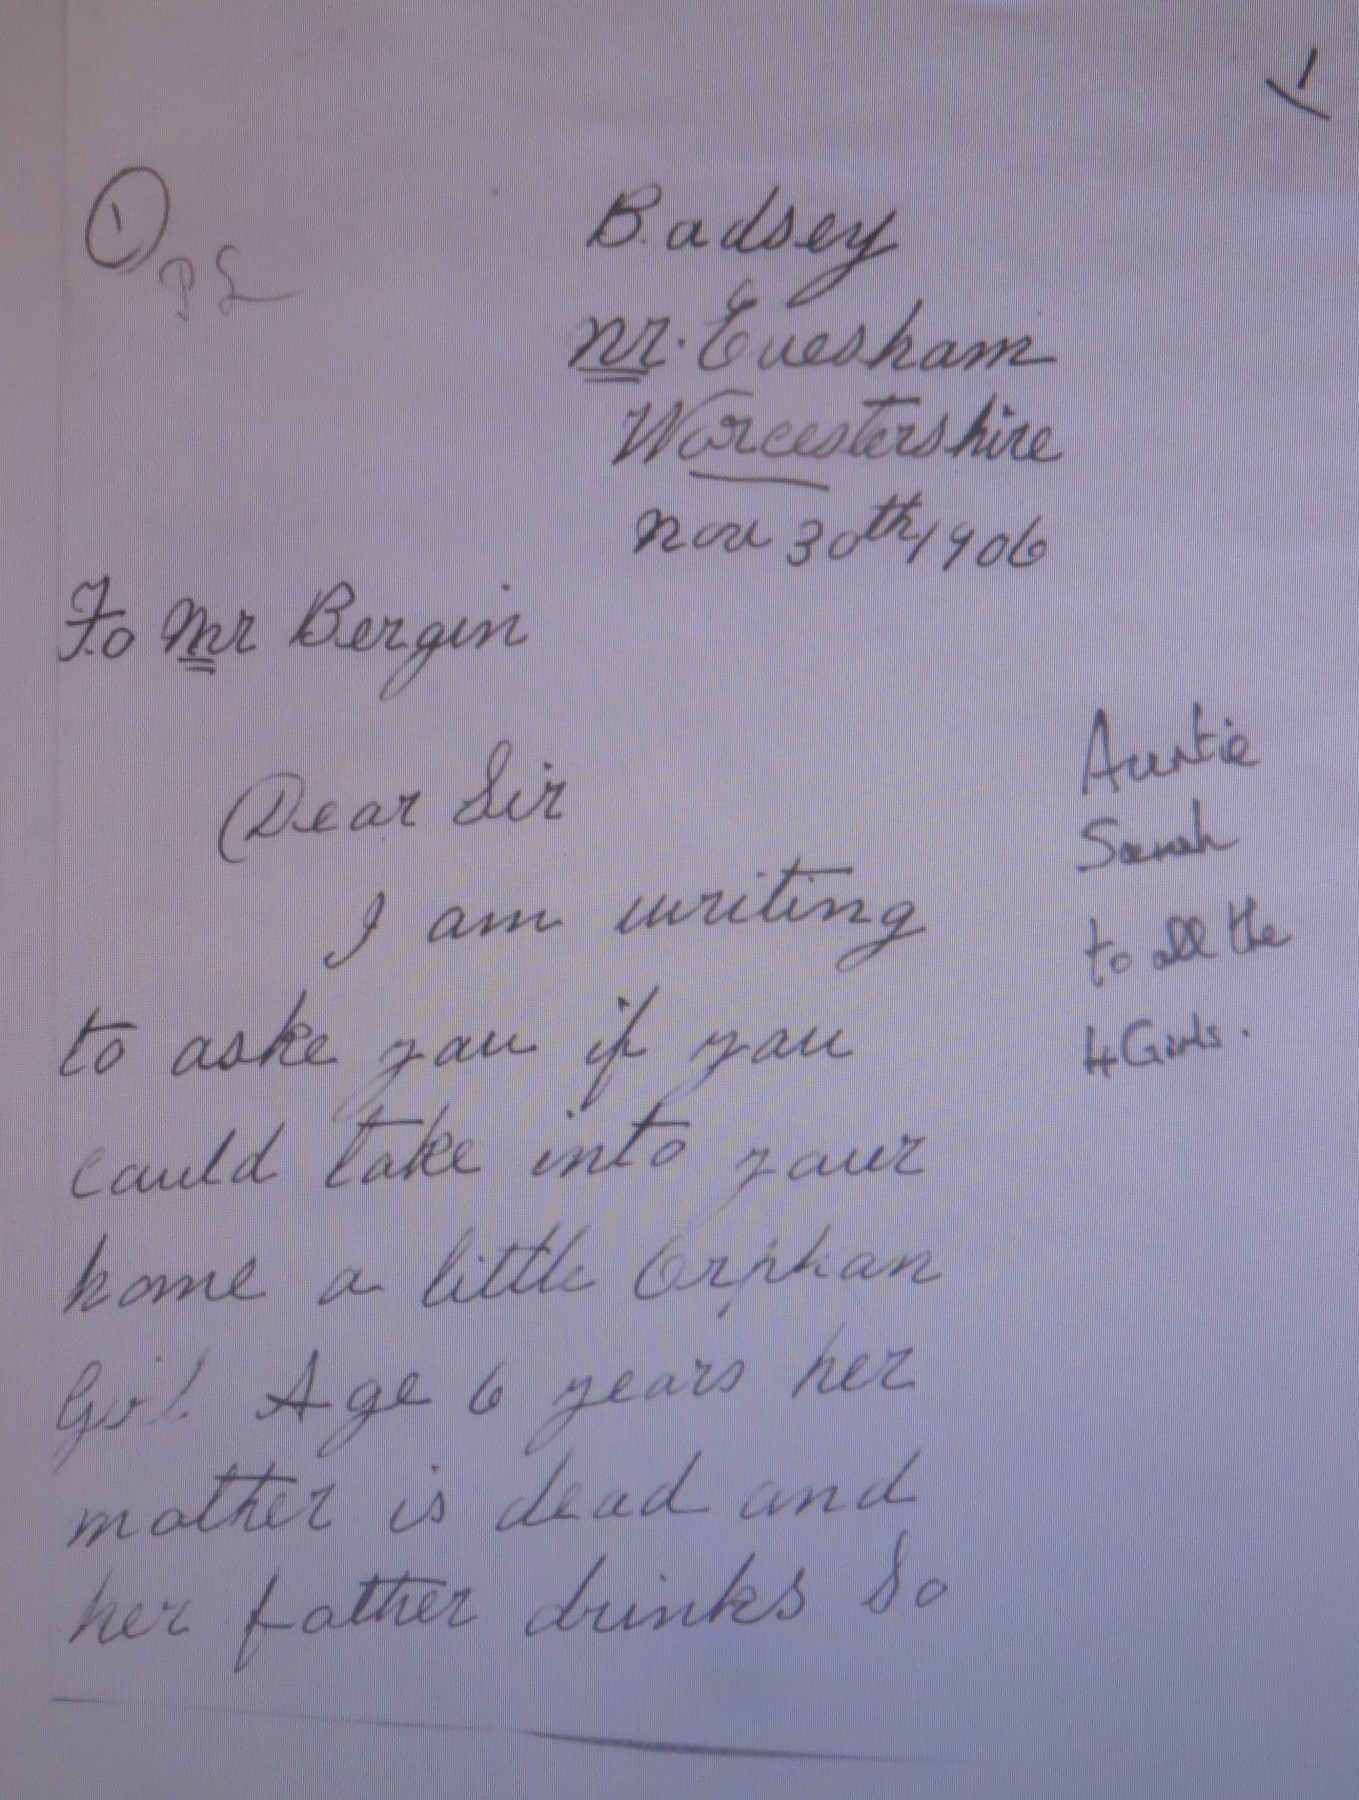 1
Badsey
nr. Evesham
Worcestershire
Nov 30th 1906
To Mr Bergin
Dear Sir
I am writing
to aske you if you
could take into your
home a little Orphan
Girl Age 6 years her
mother is dead and
her father drinks So
Auntie
Sarah
to all the
4 Girls.